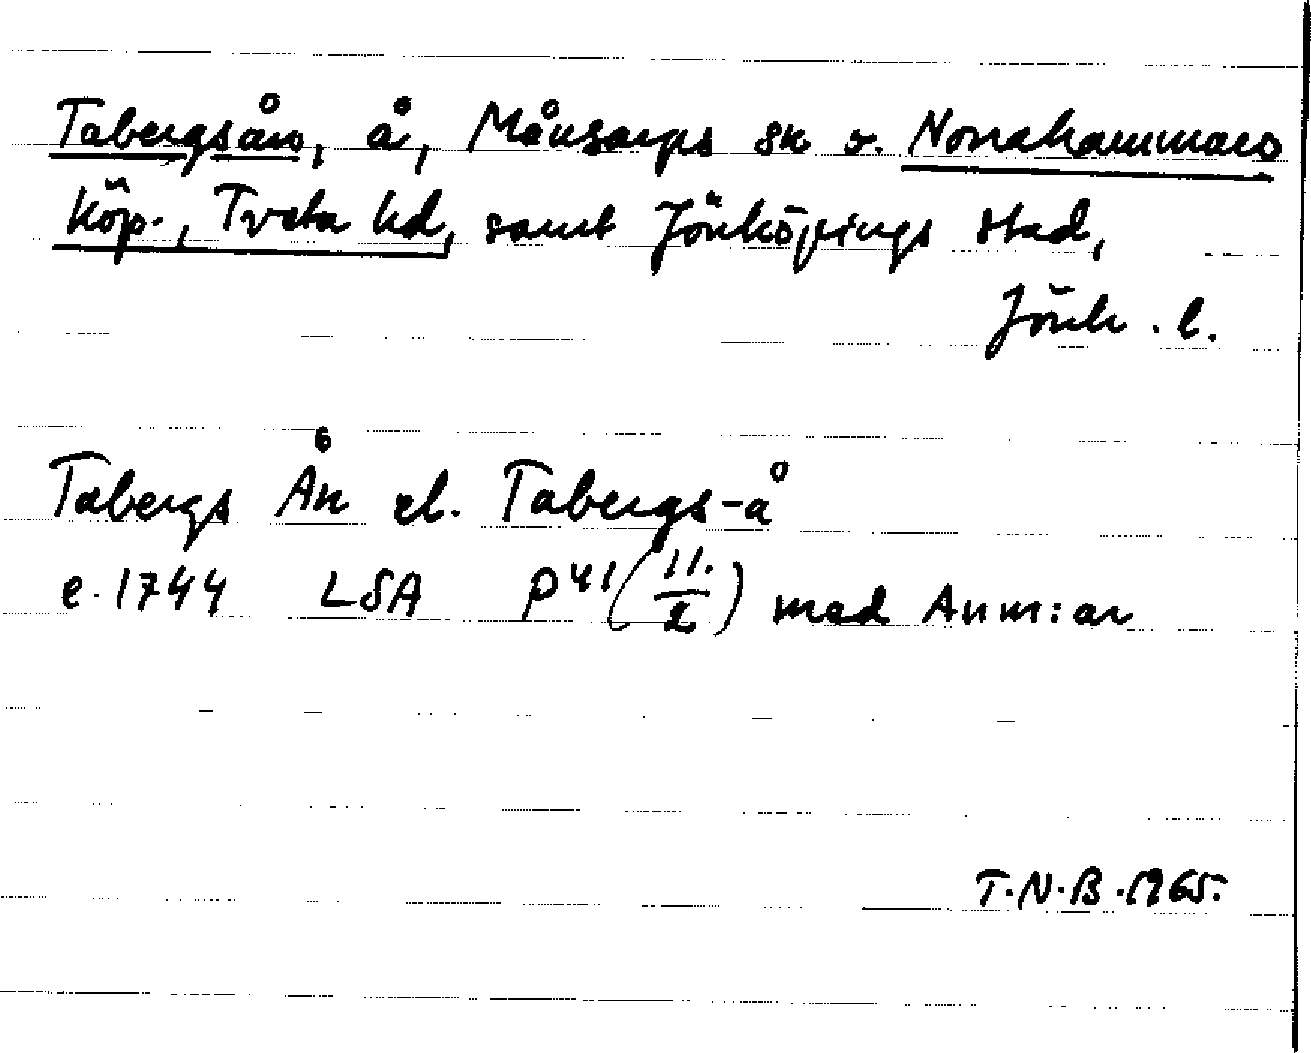 Tabergsån, å, Månsarps sk o. Norrahammars
köp., Tveta hd, samt Jönköpings stad,
Jönk. l.
Tabergs Ån el. Tabergs-å
e. 1744 LSA P 41 (11./2) med Anm:ar
T.N.B. 1965.